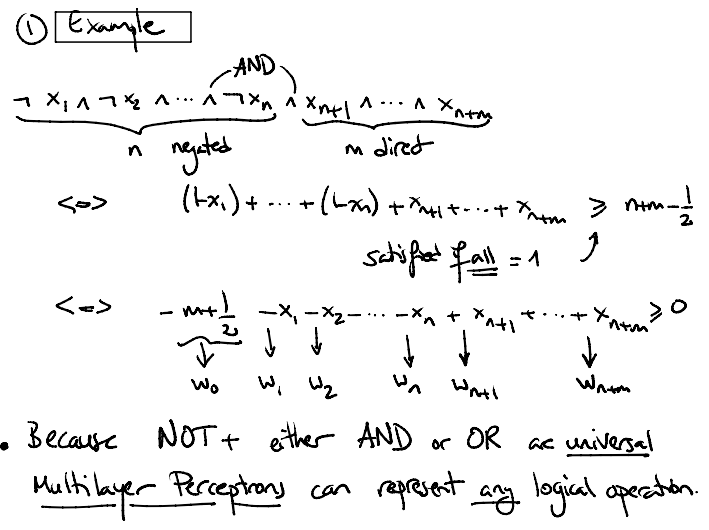 ① Example
AND
¬ x₁ ∧ ¬ x₂ ∧ ... ∧ ¬ xₙ ∧ xₙ₊₁ ∧ ... ∧ xₙ₊ₘ
n negated m direct
<=> (1-x₁) + ... + (1-xₙ) + xₙ₊₁ + ... + xₙ₊ₘ ≥ n+m-1/2
satisfied if all = 1
<=> -m+1/2 -x₁ -x₂ - ... -xₙ + xₙ₊₁ + ... + xₙ₊ₘ ≥ 0
w₀ w₁ w₂ wₙ wₙ₊₁ wₙ₊ₘ
• Because NOT + either AND or OR are universal
Multilayer Perceptrons can represent any logical operation.